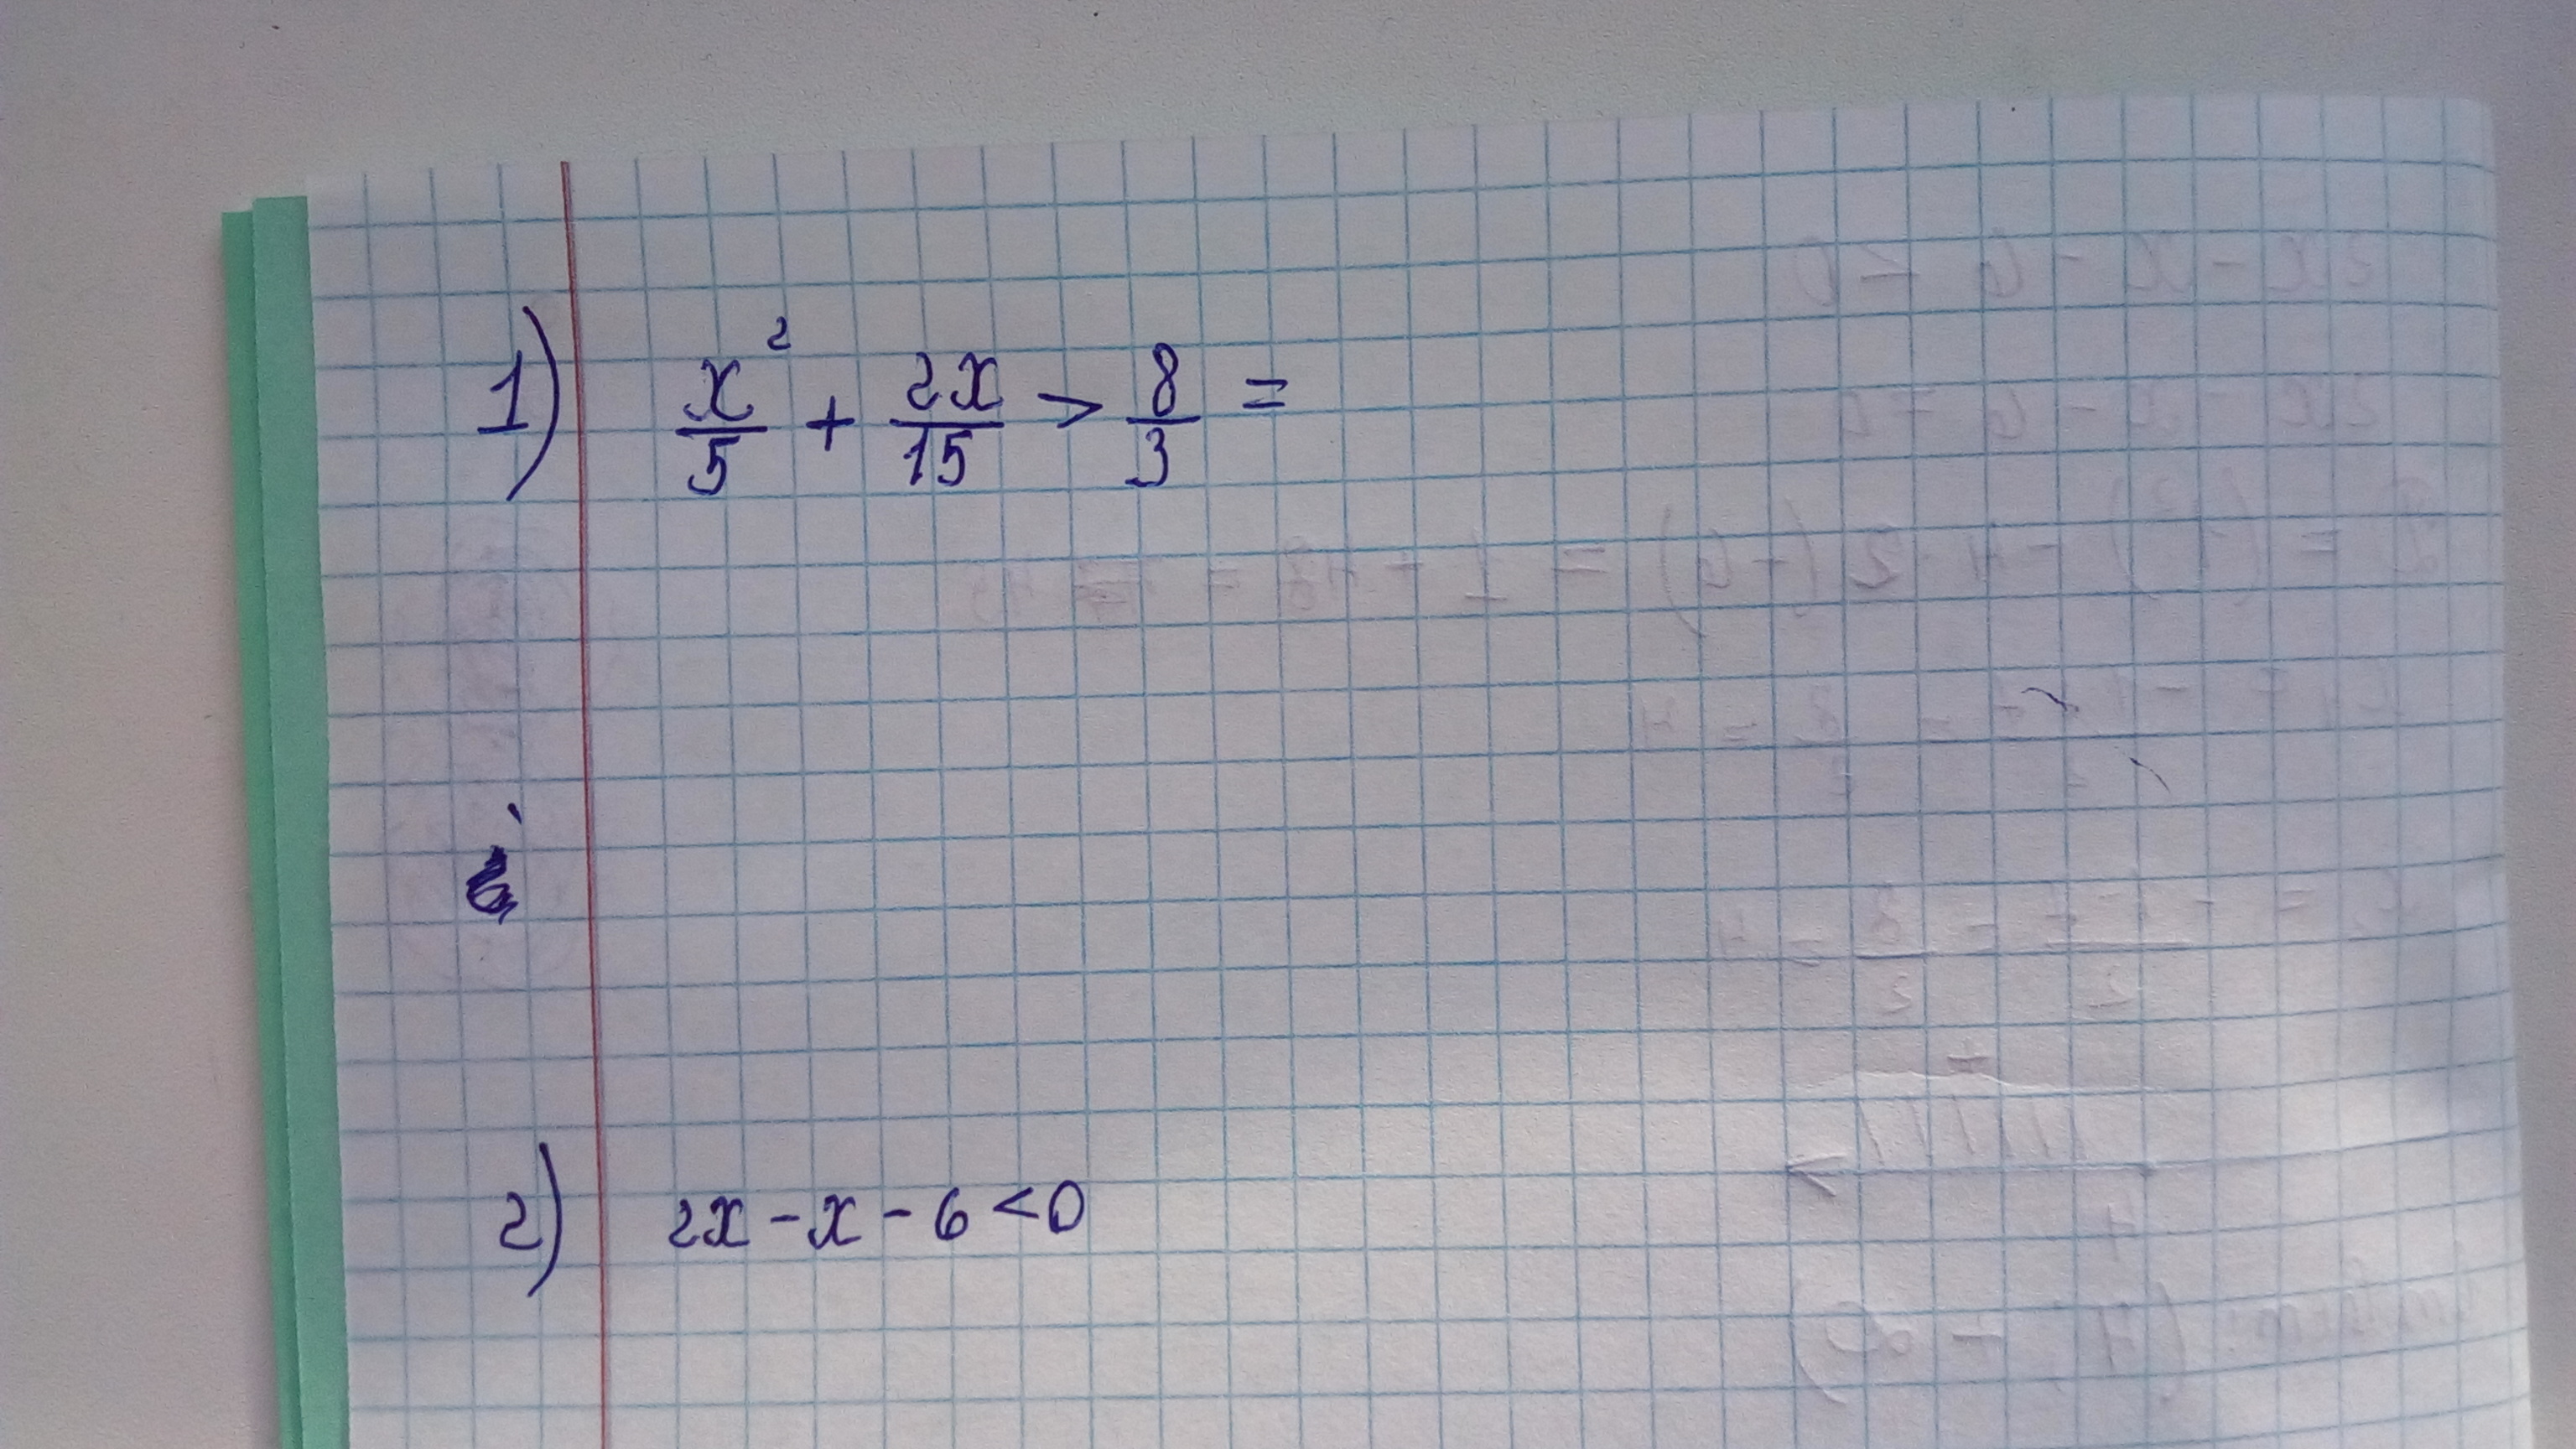 1) x²/5 + 2x/15 > 8/3 =
2) 2x - x - 6 < 0